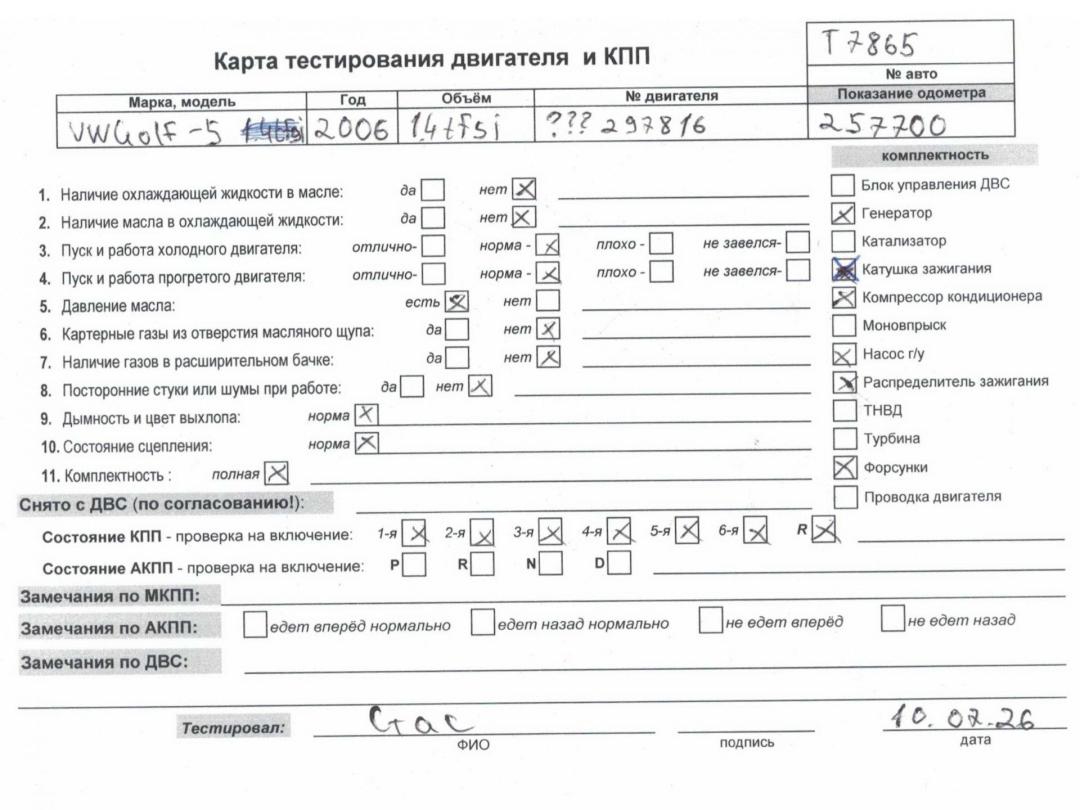 T 7865
Карта тестирования двигателя и КПП
№ авто
Марка, модель Год Объём № двигателя Показание одометра
VW Golf-5 2006 1.4tfsi ??? 297816 257700
комплектность
1. Наличие охлаждающей жидкости в масле: да нет Блок управления ДВС
2. Наличие масла в охлаждающей жидкости: да нет Генератор
3. Пуск и работа холодного двигателя: отлично- норма - плохо - не завелся- Катализатор
4. Пуск и работа прогретого двигателя: отлично- норма - плохо - не завелся- Катушка зажигания
5. Давление масла: есть нет Компрессор кондиционера
6. Картерные газы из отверстия масляного щупа: да нет Моновпрыск
7. Наличие газов в расширительном бачке: да нет Насос г/у
8. Посторонние стуки или шумы при работе: да нет Распределитель зажигания
9. Дымность и цвет выхлопа: норма ТНВД
10. Состояние сцепления: норма Турбина
11. Комплектность : полная Форсунки
Снято с ДВС (по согласованию!): Проводка двигателя
Состояние КПП - проверка на включение: 1-я 2-я 3-я 4-я 5-я 6-я R
Состояние АКПП - проверка на включение: P R N D
Замечания по МКПП:
Замечания по АКПП: едет вперёд нормально едет назад нормально не едет вперёд не едет назад
Замечания по ДВС:
Тестировал: Стас 10.02.26
ФИО подпись дата